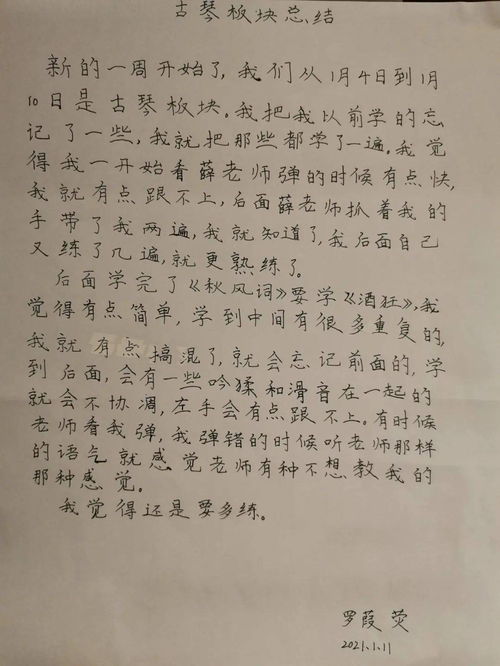 古琴板块总结
新的一周开始了,我们从1月4日到1月
10日是古琴板块。我把我以前学的忘
记了一些,我就把那些都学了一遍。我觉
得我一开始看薛老师弹的时候有点快,
我就有点跟不上,后面薛老师抓着我的
手带了我两遍,我就知道了,我后面自己
又练了几遍,就更熟练了。
后面学完了《秋风词》要学《酒狂》,我
觉得有点简单,学到中间有很多重复的,
我就有点搞混了,就会忘记前面的,学
到后面,会有一些吟猱和滑音在一起的
就会不协调,左手会有点跟不上。有时候
老师看我弹,我弹错的时候听老师那样
的语气就感觉老师有种不想教我的
那种感觉。
我觉得还是要多练。
罗葭荧
2021.1.11